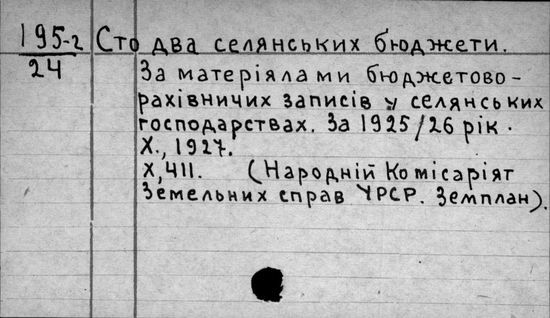 195-2 Сто два селянських бюджети.
24 За матеріялами бюджетово-
рахівничих записів у селянських
господарствах. За 1925/26 рік.
Х., 1927.
X, 411. (Народній Комісаріят
Земельних справ УРСР. Земплан).